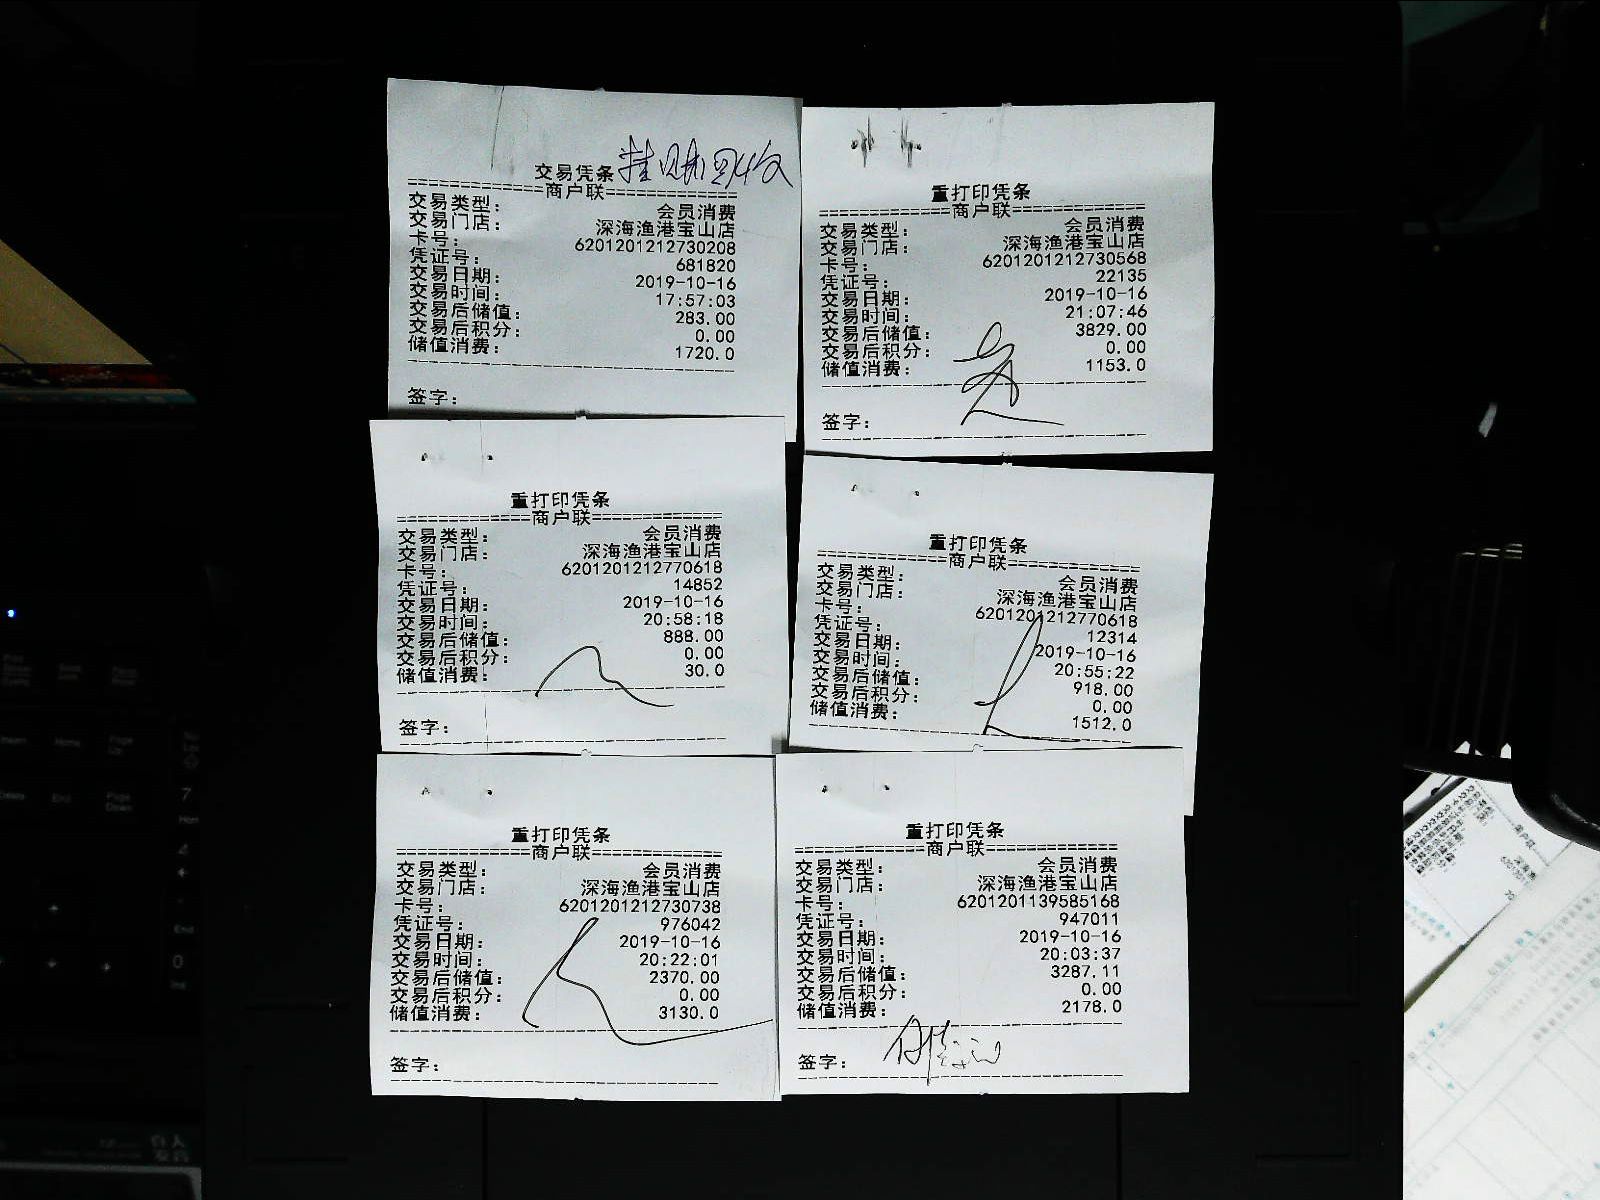 交易凭条
==============商户联==============
交易类型: 会员消费
交易门店: 深海渔港宝山店
卡号: 6201201212730208
凭证号: 681820
交易日期: 2019-10-16
交易时间: 17:57:03
交易后储值: 283.00
交易后积分: 0.00
储值消费: 1720.0
签字:
重打印凭条
==============商户联==============
交易类型: 会员消费
交易门店: 深海渔港宝山店
卡号: 6201201212730568
凭证号: 22135
交易日期: 2019-10-16
交易时间: 21:07:46
交易后储值: 3829.00
交易后积分: 0.00
储值消费: 1153.0
签字:
重打印凭条
==============商户联==============
交易类型: 会员消费
交易门店: 深海渔港宝山店
卡号: 6201201212770618
凭证号: 14852
交易日期: 2019-10-16
交易时间: 20:58:18
交易后储值: 888.00
交易后积分: 0.00
储值消费: 30.0
签字:
重打印凭条
==============商户联==============
交易类型: 会员消费
交易门店: 深海渔港宝山店
卡号: 6201201212770618
凭证号: 12314
交易日期: 2019-10-16
交易时间: 20:55:22
交易后储值: 918.00
交易后积分: 0.00
储值消费: 1512.0
重打印凭条
==============商户联==============
交易类型: 会员消费
交易门店: 深海渔港宝山店
卡号: 6201201212730738
凭证号: 976042
交易日期: 2019-10-16
交易时间: 20:22:01
交易后储值: 2370.00
交易后积分: 0.00
储值消费: 3130.0
签字:
重打印凭条
==============商户联==============
交易类型: 会员消费
交易门店: 深海渔港宝山店
卡号: 6201201139585168
凭证号: 947011
交易日期: 2019-10-16
交易时间: 20:03:37
交易后储值: 3287.11
交易后积分: 0.00
储值消费: 2178.0
签字: